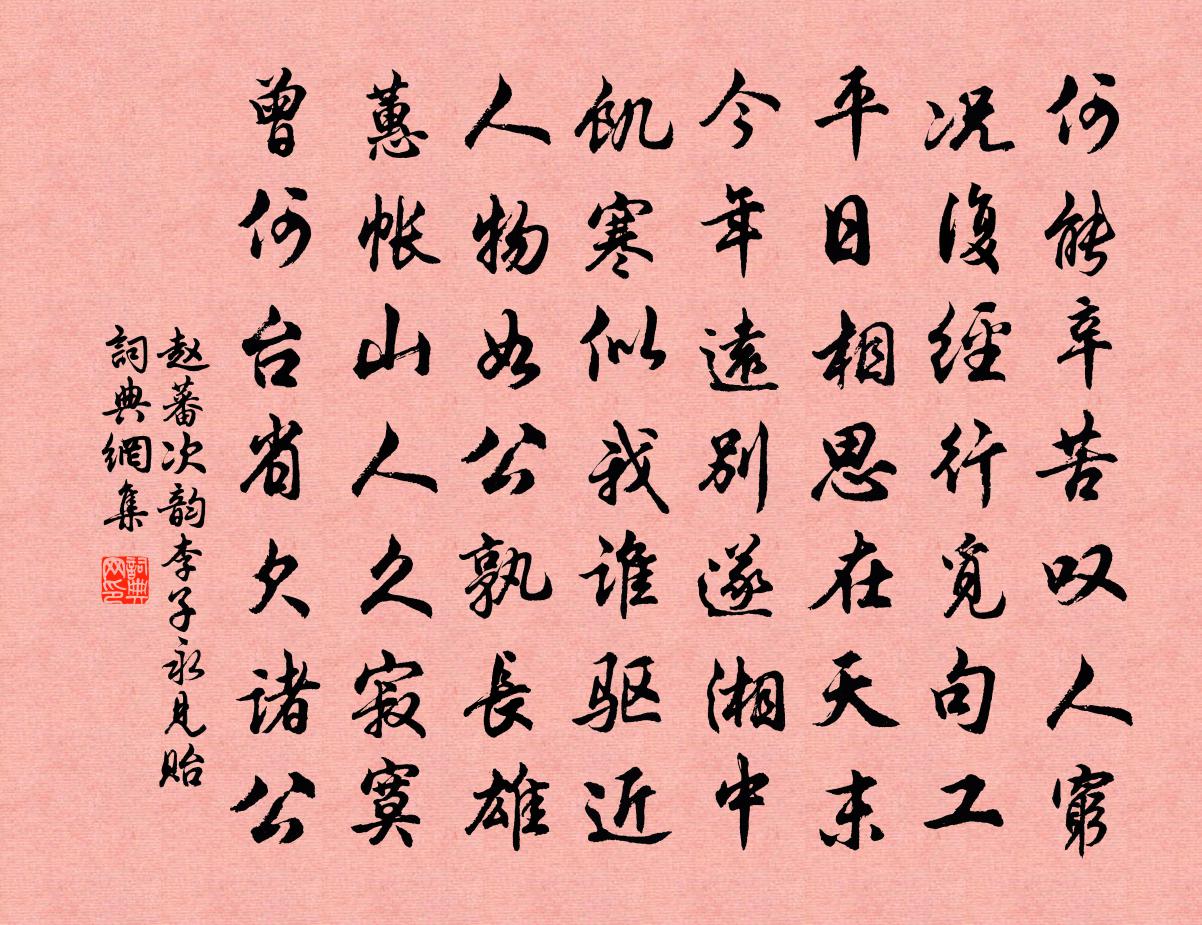 何能辛苦叹人窮
况復經行覓句工
平日相思在天末
今年遠別遂湘中
飢寒似我谁驱近
人物如公孰長雄
蕙帐山人久寂寞
曾何台省欠諸公
赵蕃次韵李子永見贻
詞典網集
詞典网印